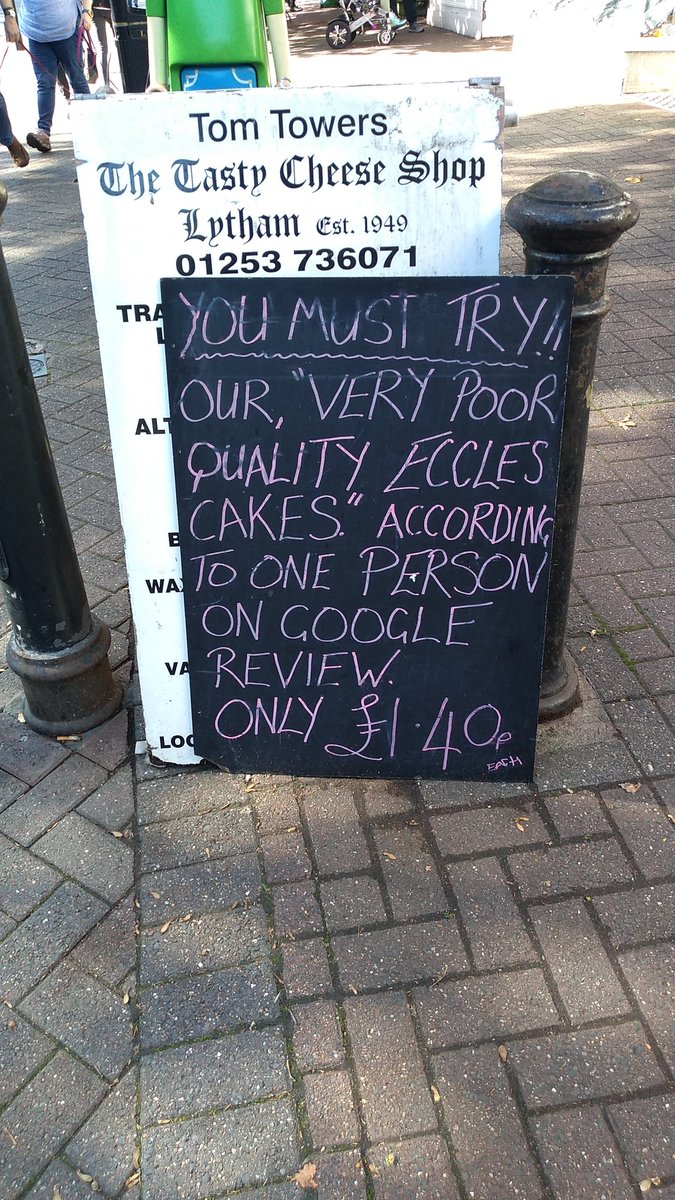 Tom Towers
The Tasty Cheese Shop
Lytham Est. 1949
01253 736071
YOU MUST TRY!!
OUR, "VERY POOR
QUALITY ECCLES
CAKES." ACCORDING
TO ONE PERSON
ON GOOGLE
REVIEW.
ONLY £1.40p
EACH